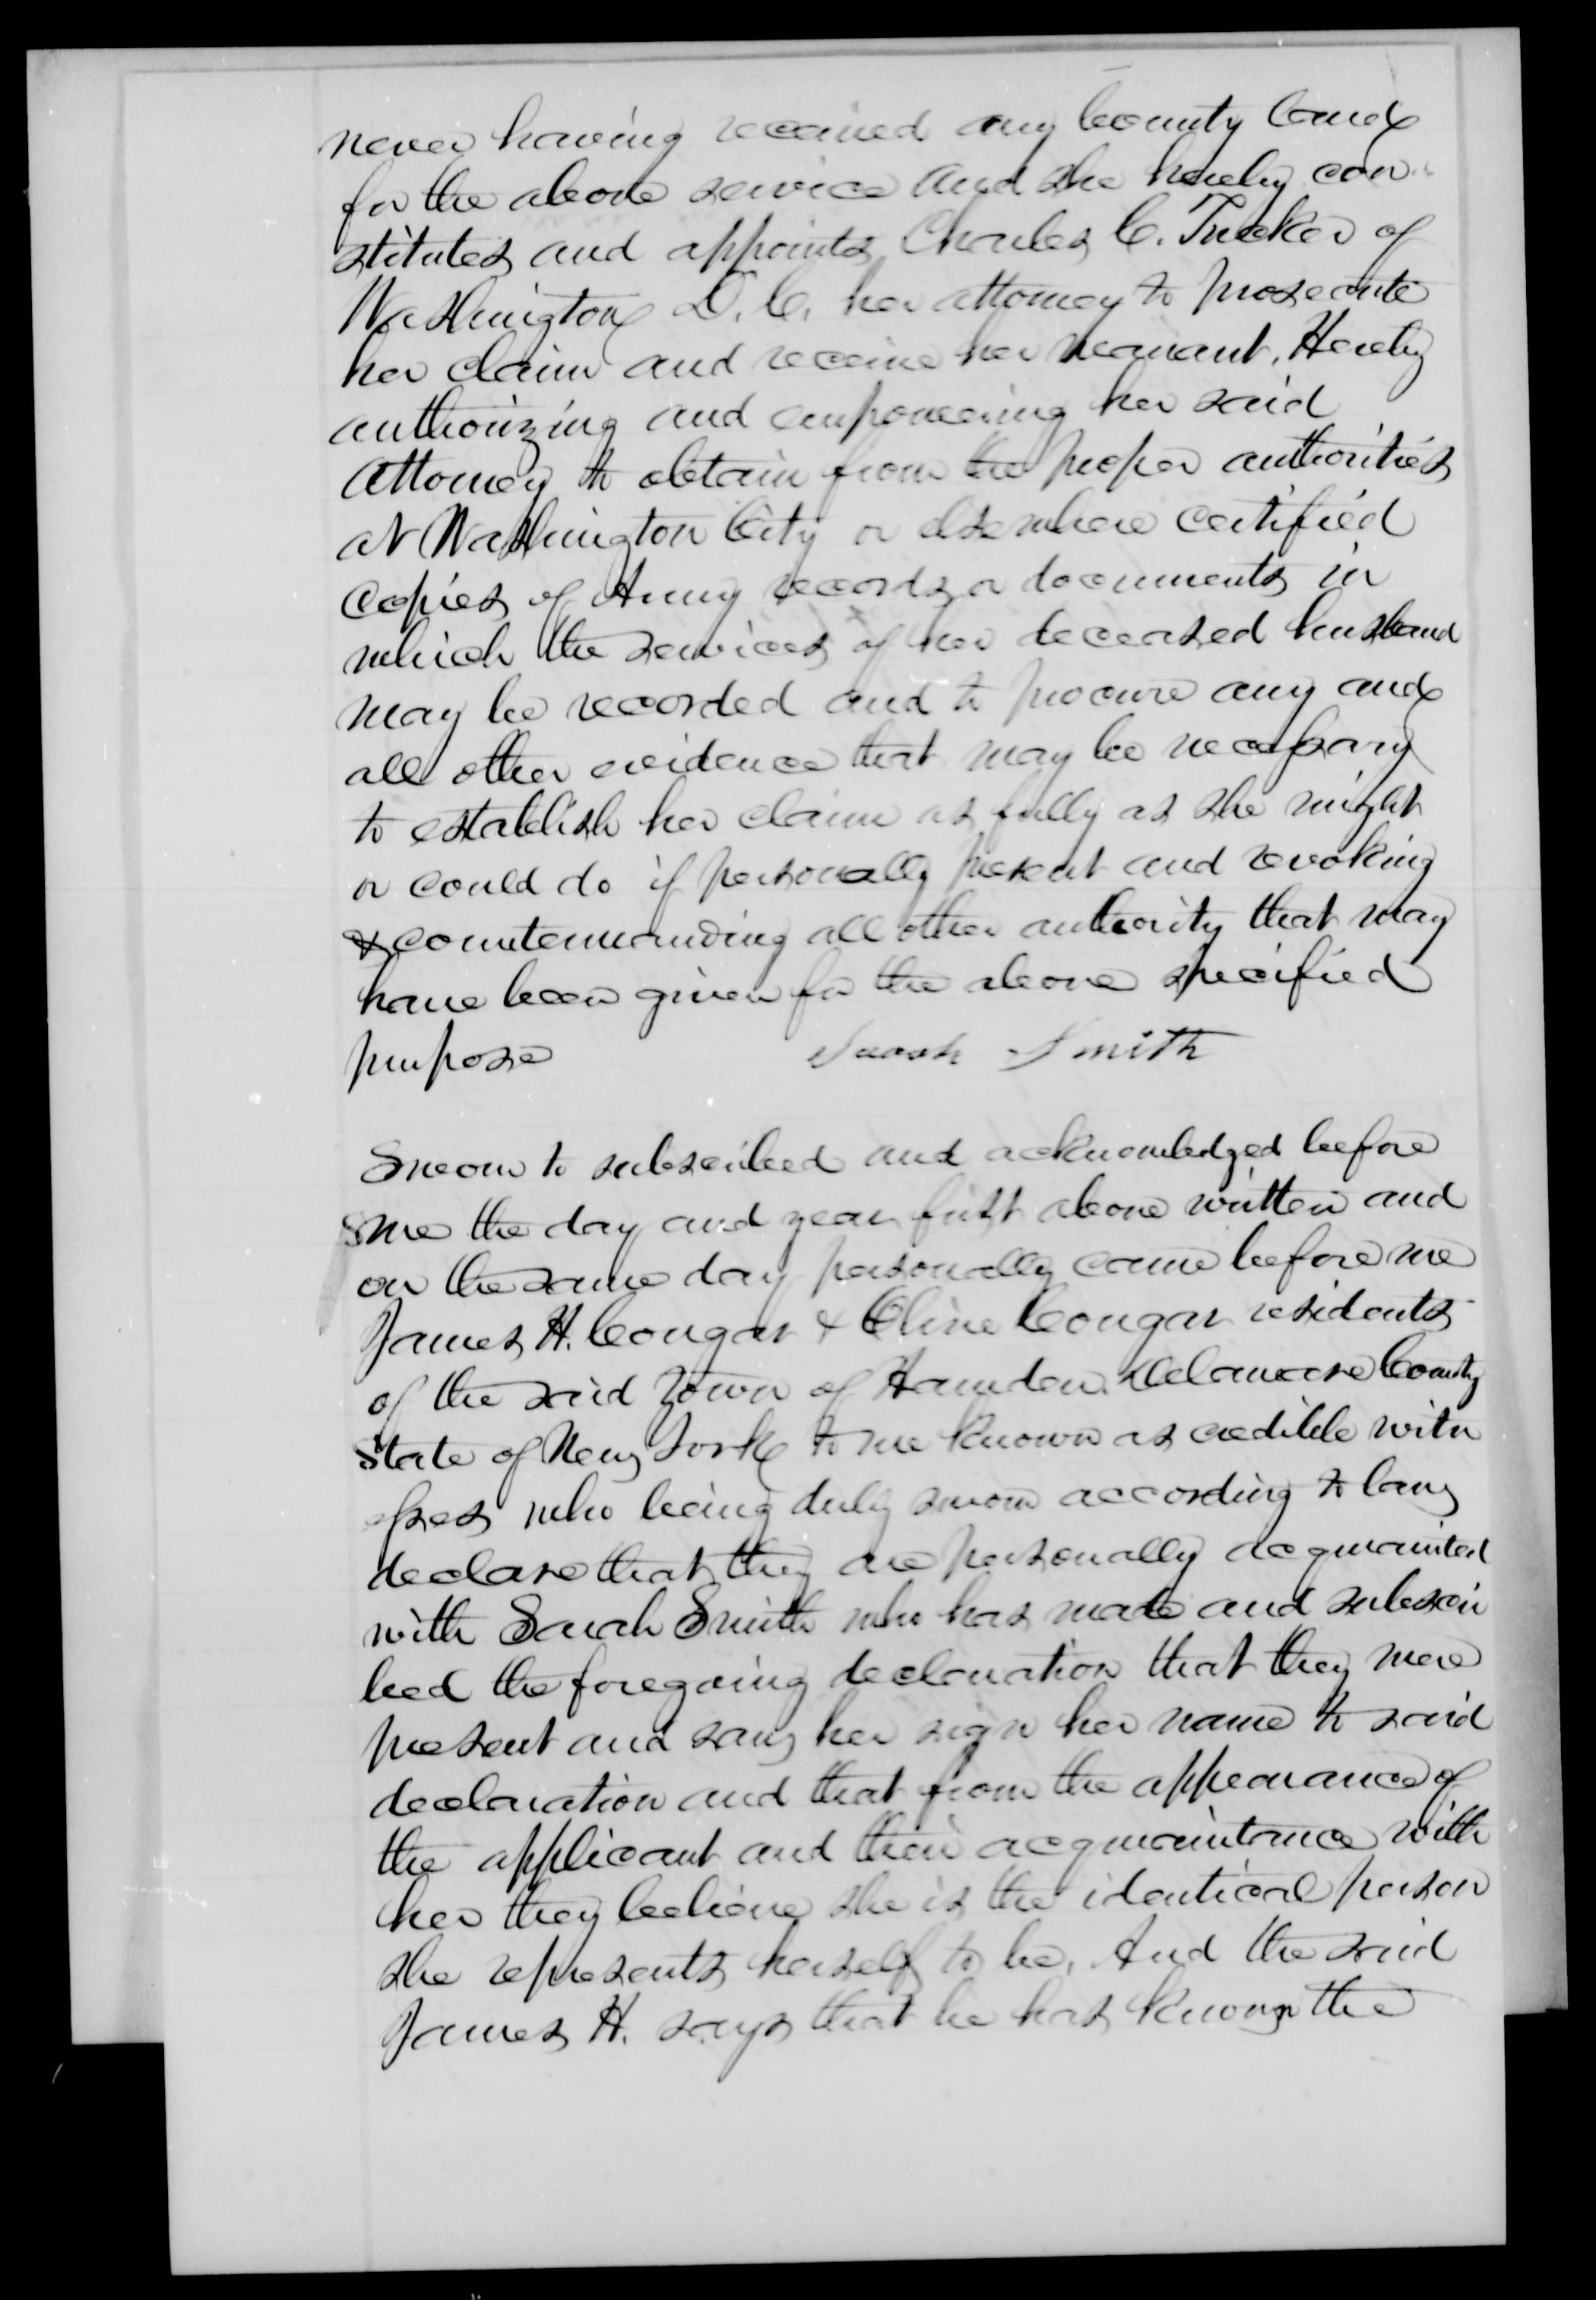 never having received any bounty land
for the above service and she hereby con-
stitutes and appoints Charles C. Tucker of
Washington D.C. her attorney to prosecute
her claim and receive her warrant, Hereby
authorizing and empowering her said
Attorney to obtain from the proper authorities
at Washington City or elsewhere certified
copies of Army records or documents in
which the services of her deceased husband
may be recorded and to procure any and
all other evidence that may be necessary
to establish her claim as fully as she might
or could do if personally present and revoking
& countermanding all other authority that may
have been given for the above specified
purpose Sarah Smith
Sworn to subscribed and acknowledged before
me the day and year first above written and
on the same day personally came before me
James H. Cougar & Cline Cougar residents
of the said Town of Hamden Delaware County
State of New York to me known as credible witn
esses who being duly sworn according to law
declare that they are personally acquainted
with Sarah Smith who has made and subscri
bed the foregoing declaration that they were
present and saw her sign her name to said
declaration and that from the appearance of
the applicant and their acquaintance with
her they believe she is the identical person
she represents herself to be, And the said
James H. says that he has known the